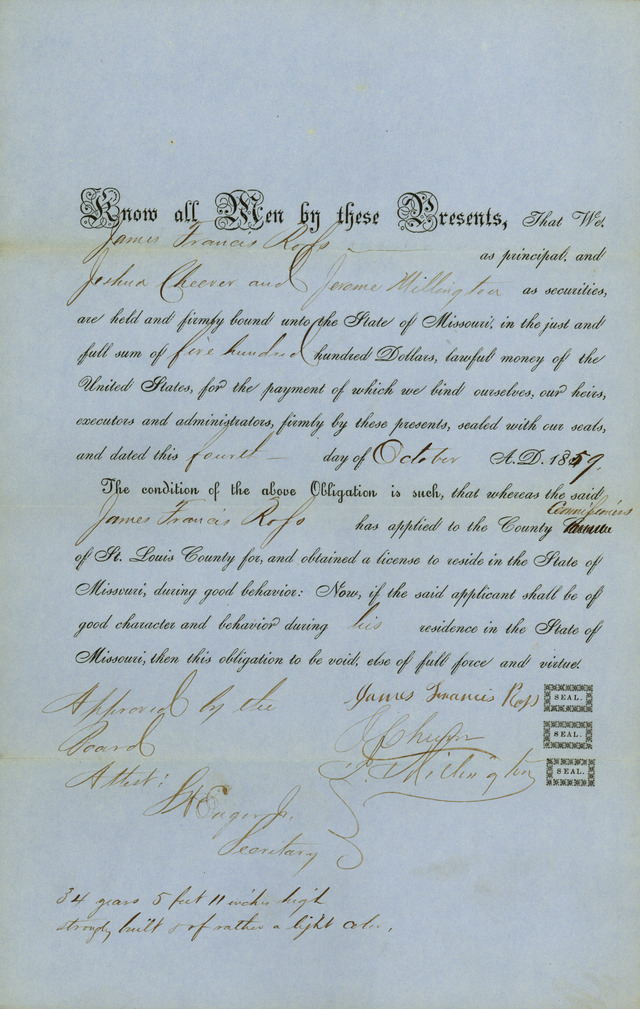 Know all Men by these Presents, That We.
James Francis Ross
as principal, and
Joshua Cheever and Jerome Millington as securities,
are held and firmly bound unto the State of Missouri, in the just and
full sum of five hundred hundred Dollars, lawful money of the
United States, for the payment of which we bind ourselves, our heirs,
executors and administrators, firmly by these presents, sealed with our seals,
and dated this fourth day of October A.D. 1859.
The condition of the above Obligation is such, that whereas the said
Commissioners
James Francis Ross has applied to the County
of St. Louis County for, and obtained a license to reside in the State of
Missouri, during good behavior: Now, if the said applicant shall be of
good character and behavior during his residence in the State of
Missouri, then this obligation to be void, else of full force and virtue.
Approved by the
Board
Attest:
Secretary
James Francis Ross SEAL.
SEAL.
Millington SEAL.
34 years 5 feet 11 inches high
strongly built & of rather a light color.